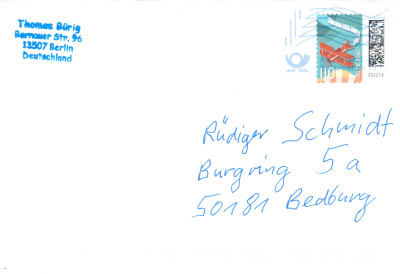 Thomas Bürig
Bernauer Str. 96
13507 Berlin
Deutschland
110
Rüdiger Schmidt
Burgring 5 a
50181 Bedburg